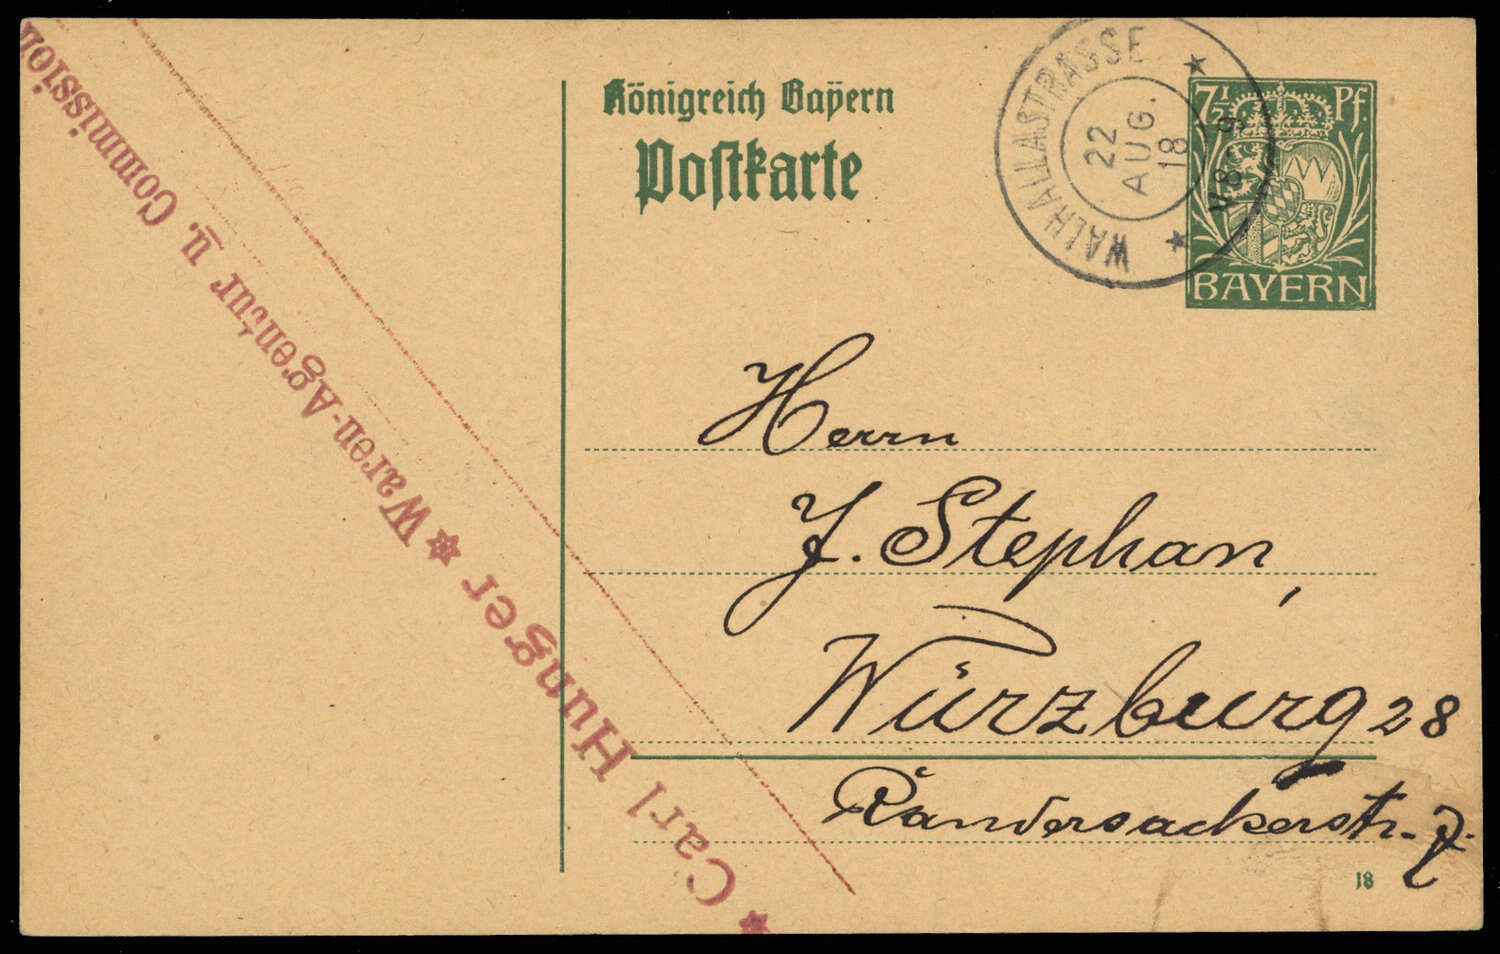 Königreich Bayern
Postkarte
WALHALLASTRASSE
22
AUG.
18
V8-9
7½ Pf.
BAYERN
Herrn
J. Stephan,
Würzburg 28
Randersackerstr.
18
Carl Hunger * Waren-Agentur u. Commission